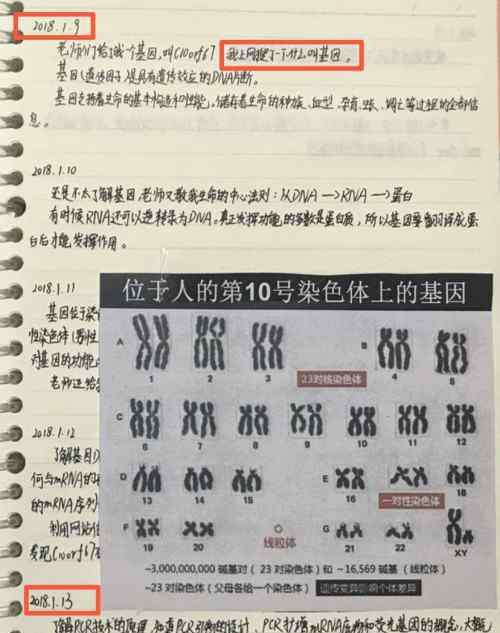 2018.1.9
老师们给了我一个基因,叫C10orf67 我上网搜了一下什么叫基因。
基因(遗传因子)是具有遗传效应的DNA片断。
基因支持着生命的基本构造和性能,储存着生命的种族、血型、孕育、生长、凋亡等过程的全部信
息。
2018.1.10
还是不太了解基因,老师又教我生命的中心法则:从DNA→RNA→蛋白
有时候RNA还可以逆转录为DNA。真正发挥功能的多数是蛋白质,所以基因要翻译成蛋
白后才能发挥作用。
2018.1.11
基因位于染
性染色体(男性
对基因的功能
老师还给
位于人的第10号染色体上的基因
A B
1 2 3 23对核染色体 4 5
C
6 7 8 9 10 11 12
D E
13 14 15 16 一对性染色体 18
F G
19 20 线粒体 21 22 XY
~3,000,000,000 碱基对(23 对染色体)和 ~16,569 碱基(线粒体)
~23 对染色体(父母各给一个染色体) 遗传变异影响个体差异
2018.1.12
了解基因D
何与mRNA的
的mRNA序列
利用网站
发现C10orf67在
2018.1.13
了解PCR技术的原理,知道PCR引物的设计、PCR扩增、mRNA底物和荧光基团的概念,大概